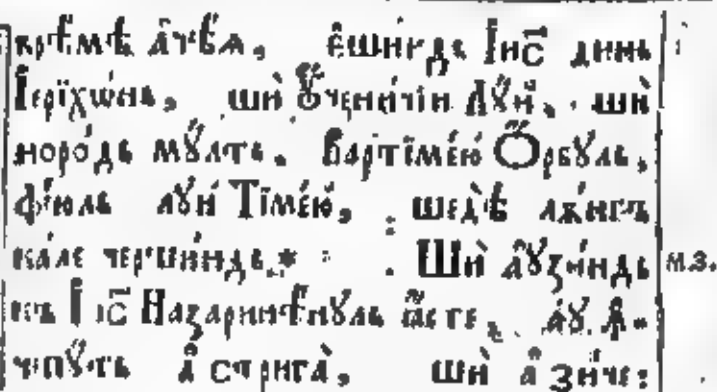 врѣ́мѣ ача́ѧ, ѐши́ндь І҆и҃с динь
І҆ерїхѡ́нь, шѝ ᲂу҆ченичїи Лꙋ́й, шѝ
норо́дь мꙋ́лть. Вартїме́ю Ѻ҆рбꙋль,
фїюль лꙋ́й Тїме́ю, шедѣ̀ лѫ́нгъ
ка́ле чершиндь.* Шѝ а҆ꙋзи́ндь м.з.
къ І҆и҃с Назаринѣ́нꙋль ꙗ҆́сте, аꙋ́ ꙟ҆-
чпꙋ́ть а҆ стрига̀, шѝ а҆ зи́че: